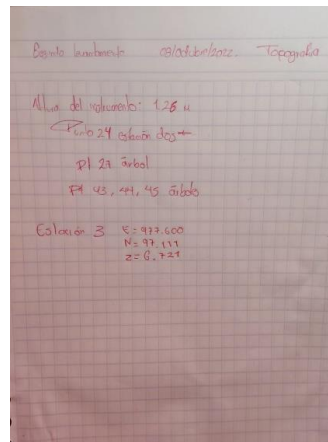 Evento levantamiento 09/octubre/2022. Topografia
Altura del instrumento: 1.26 m
Punto 24 estación dos
pt 27 árbol
pt 43, 44, 45 árboles
Estación 3 E = 977.600
N = 97.111
z = 6.721